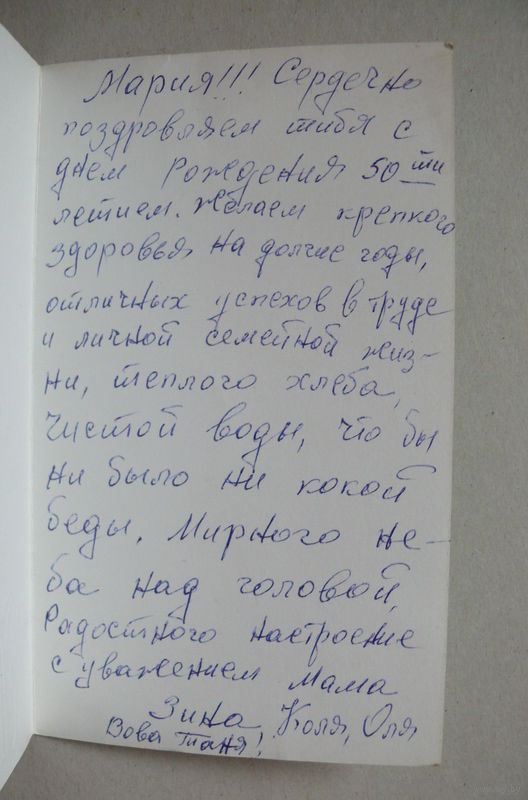 Мария!!! Сердечно
поздровляем тибя с
днем рождения 50ти
летием. Желаем крепкого
здоровья на долгие годы,
отличных успехов в труде
и личной семейной жиз-
ни, теплого хлеба,
Чистой воды, что бы
ни было ни какой
беды. Мирного не-
ба над головой,
Радостного настроение
с уважением Мама
Зина, Коля, Оля
Вова Таня!